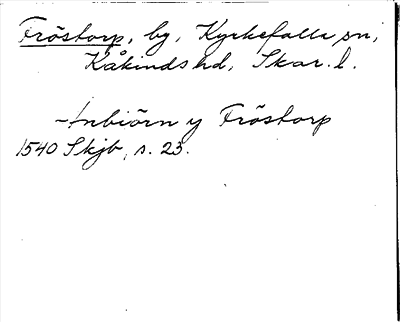 Fröstorp, by, Kyrkefalla sn,
Kåkinds hd, Skar. l.
– Anbiörn y Fröstorp
1540 Skjb, s. 23.